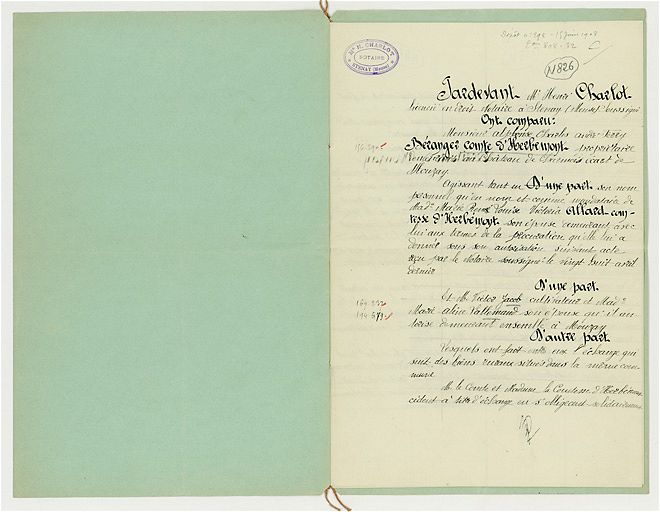 Dépôt 15 Juin 1908
Me H. CHARLOT
NOTAIRE
STENAY (Meuse)
N 826
Pardevant Me Henri Charlot
licencié en droit notaire à Stenay (Meuse) soussigné
Ont comparu:
Monsieur Alphonse Charles
Béranger comte d'Herbémont propriétaire
Château de
Mouzay.
Agissant tant en D'une part son nom
personnel qu'au nom et comme mandataire de
Made Marie Victoria Allard com-
tesse d'Herbémont son épouse demeurant avec
lui aux termes de la procuration qu'elle lui a
donnée sous son autorisation suivant acte
reçu par le notaire soussigné le vingt huit avril
dernier
D'une part
Et M. Victor Jacob cultivateur et Made
Marie Lallemand son épouse qu'il au-
torise demeurant ensemble à Mouzay
D'autre part
Lesquels ont fait entre eux l'échange qui
suit des biens ruraux situés dans la même com-
mune
M. le Comte et Madame la Comtesse d'Herbémont
cèdent à titre d'échange en s'obligeant solidairement